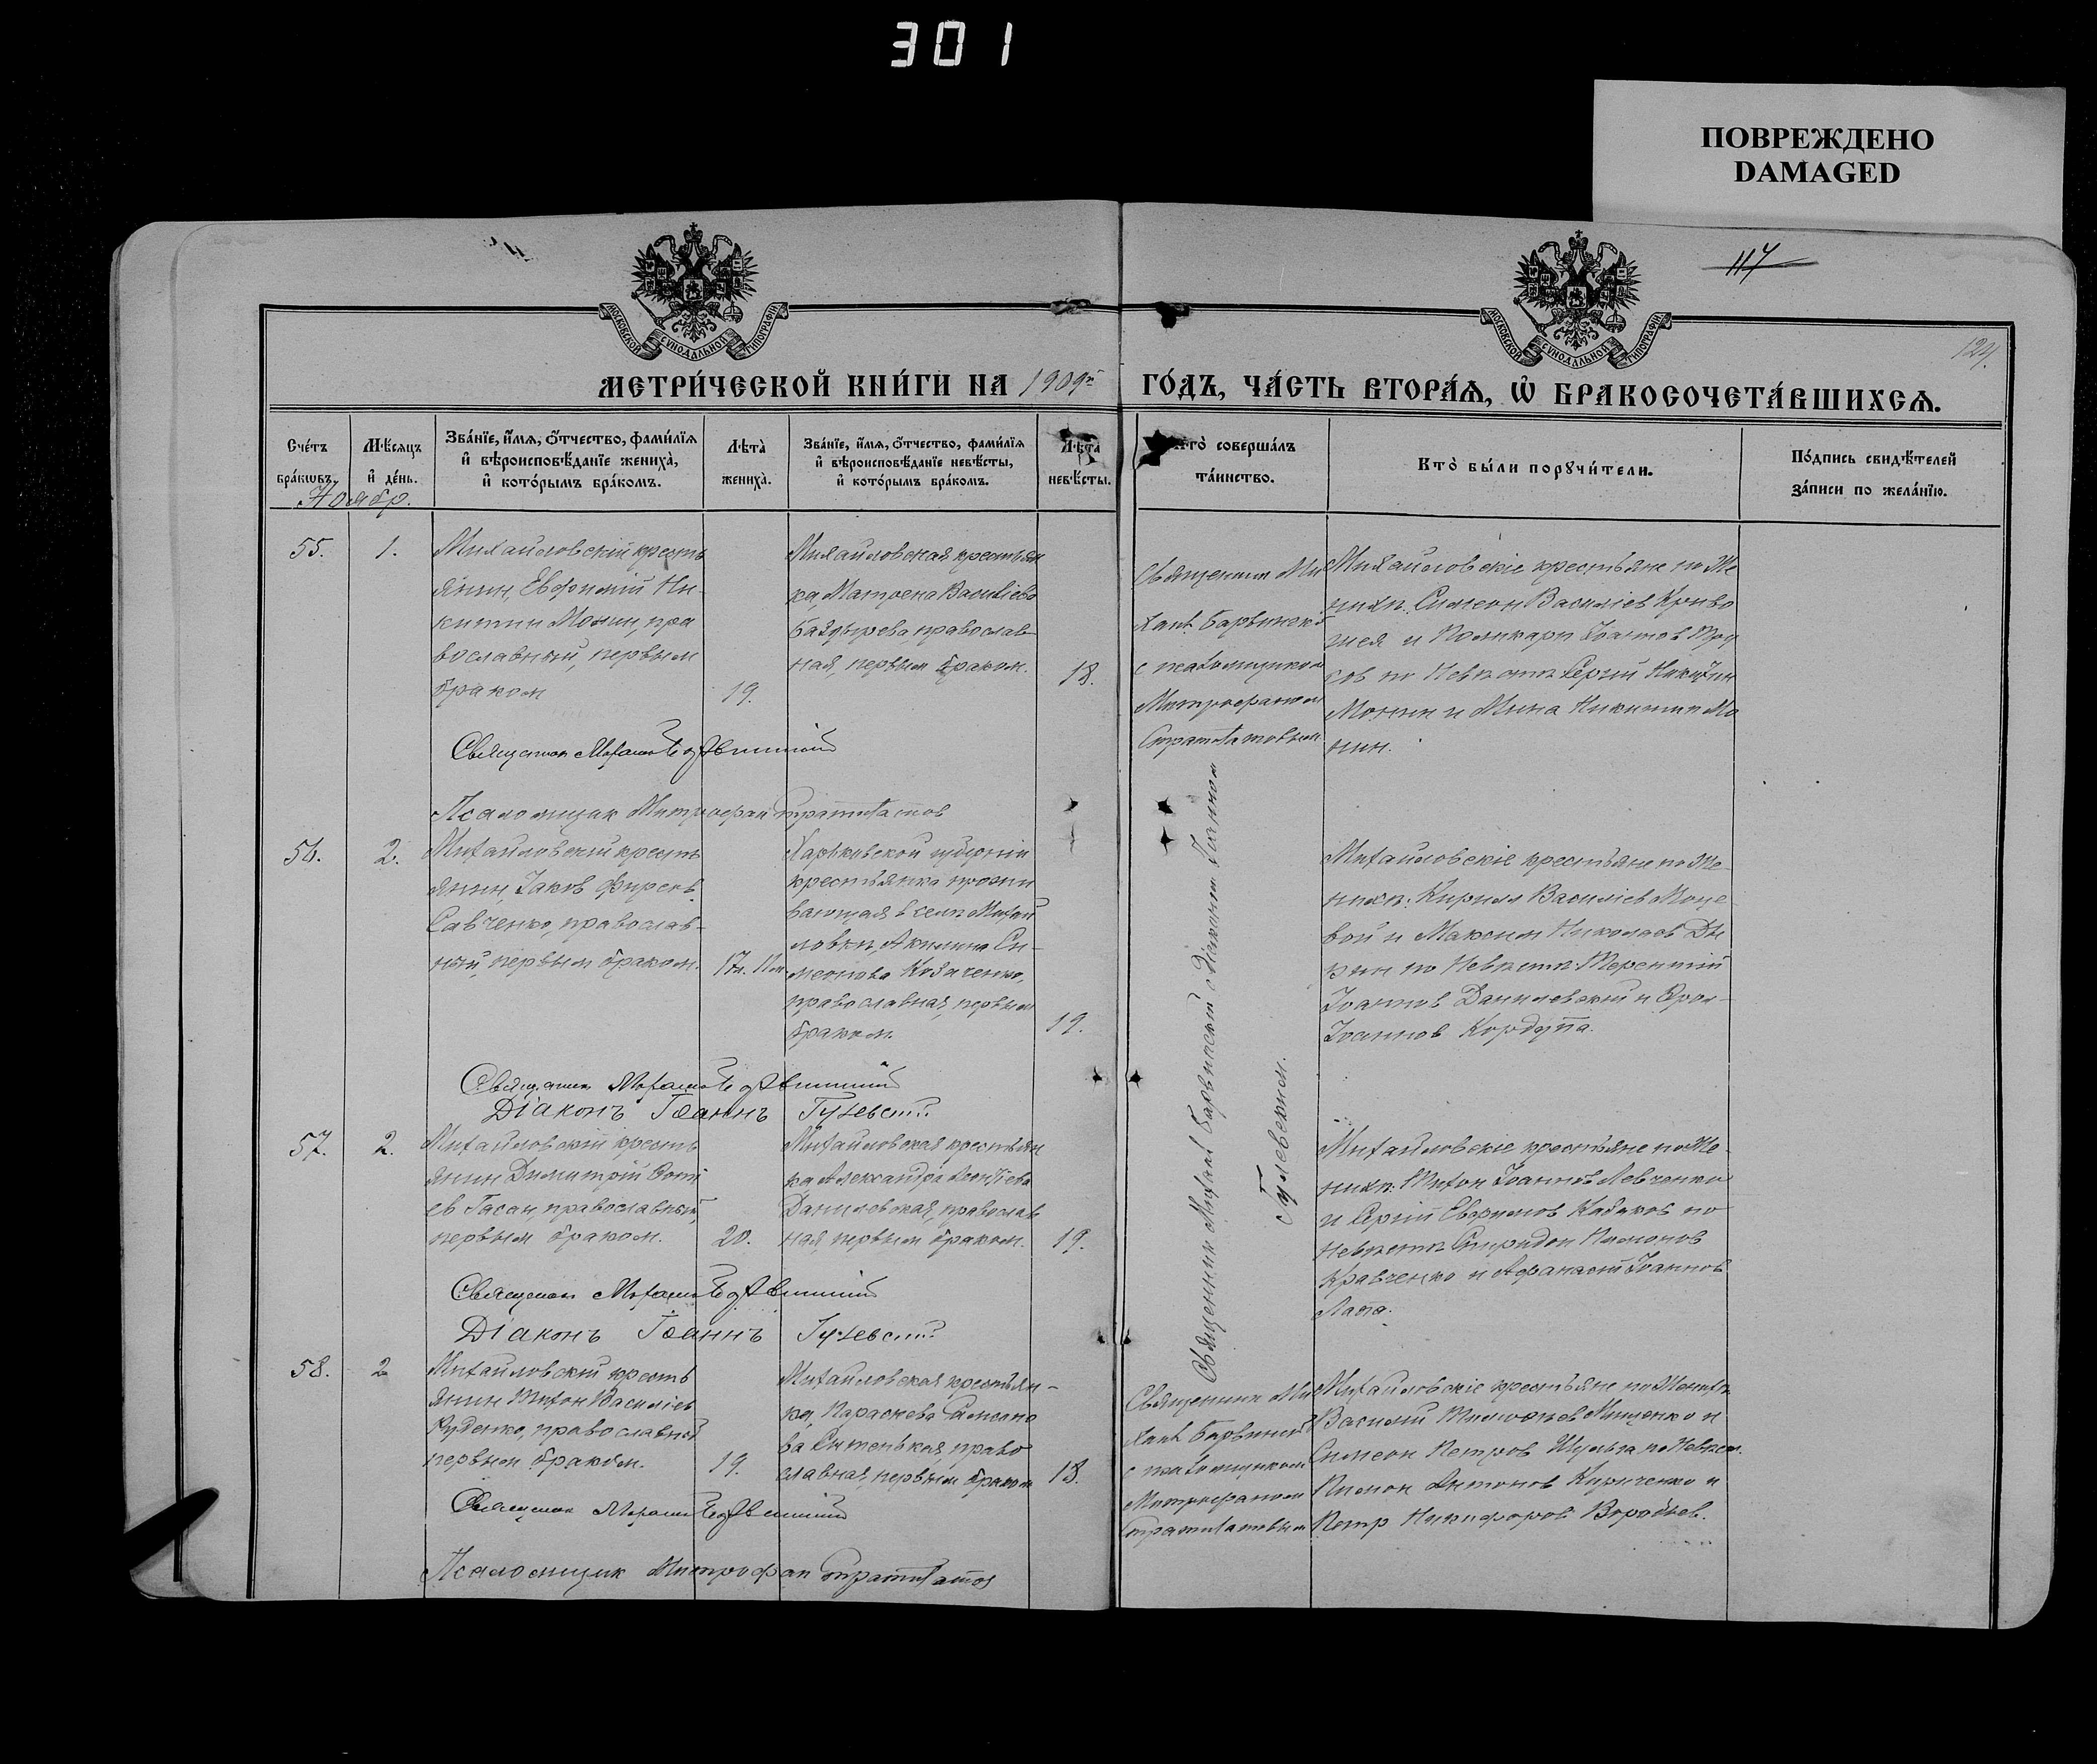 301
ПОВРЕЖДЕНО
DAMAGED
117
124.
МОСКОВСКОЙ СУНОДАЛЬНОЙ ТИПОГРАФІИ
МОСКОВСКОЙ СУНОДАЛЬНОЙ ТИПОГРАФІИ
МЕТРИ́ЧЕСКОЙ КНИ́ГИ НА 1909й ГО́ДЪ, ЧА́СТЬ ВТОРА́Ѧ, Ѡ҆ БРАКОСОЧЕТА́ВШИХСѦ.
Сче́тъ бра́кѡвъ.
Мѣ́сяцъ и҆ де́нь.
Зва́нїе, и҆́мѧ, ѻ҆́тчество, фами́лїѧ
и҆ вѣроисповѣ́данїе жениха̀,
и҆ кото́рымъ бра́комъ.
Лѣта̀ жениха̀.
Зва́нїе, и҆́мѧ, ѻ҆́тчество, фами́лїѧ
и҆ вѣроисповѣ́данїе невѣ́сты,
и҆ кото́рымъ бра́комъ.
Лѣта̀ невѣ́сты.
Кто̀ соверша́лъ та́инство.
Кто̀ бы́ли порꙋчи́тели.
По́дпись свидѣ́телей за́писи по жела́нїю.
Ноябр.
55.
1.
Михайловскій кресть
янин, Евфимій Ни-
китин Монин, пра
вославный, первым
браком
19.
Михайловская крестьян
ка, Матрена Василіева
Баздырева православ-
ная, первым браком.
18.
Священник Ми
хаил Барвинскій
с псаломщиком
Митрофаном
Михайловскіе крестьяне по Же
нихѣ: Симеон Василіев Криво
шея и Поликарп Іоаннов
сов по Невѣстѣ Сергій Никитин
Монин и Мина Никитин Мо
нин.
Священник Михаил Барвинскій
Псаломщик Митрофан
56.
2.
Михайловскій кресть
янин, Іаков Фирсов
Савченко, православ-
ный, первым браком.
17л. 11м
Харьковской губерніи
крестьянка прожи
вающая в селѣ Михай
ловкѣ, Акилина Си-
меонова Козаченко,
православная, первым
браком.
19.
Священник Михаил Барвинский с Діаконом Іоанном
Гулевским.
Михайловскіе крестьяне по Же-
нихѣ: Кирилл Василіев Моце
вой и Максим Николаев Ды
кин по Невѣстѣ: Терентій
Іоаннов Данилевскій и Фрол
Іоаннов Кордупа.
Священник Михаил Барвинскій
Діаконъ Іоаннъ Гулевскій
57.
2.
Михайловскій кресть
янин Димитрій Фоті
ев Гасан, православный,
первым браком.
20.
Михайловская крестьян
ка Александра Леонтіева
Данилевская, православ
ная, первым браком.
19.
Михайловскіе крестьяне по Же-
нихѣ: Тихон Іоаннов Левченко
и Сергій Евфимов Казаков по
невѣстѣ Спиридон Пимонов
Кравченко и Афанасій Іоаннов
Лапа.
Священник Михаил Барвинскій
Діаконъ Іоаннъ Гулевскій
58.
2
Михайловскій кресть
янин Тихон Василіев
Руденко, православный
первым браком.
19.
Михайловская крестьян-
ка, Параскева Симеоно
ва Ситенькая, право
славная, первым браком
18.
Священник Ми
хаил Барвинскій
с псаломщиком
Митрофаном
Михайловскіе крестьяне по Женихѣ
Василий Тимофеев Мищенко и
Симеон Петров Шульга по Невѣст.
Пимон Антонов Кириченко и
Петр Никифоров Воробьев.
Священник Михаил Барвинскій
Псаломщик Митрофан